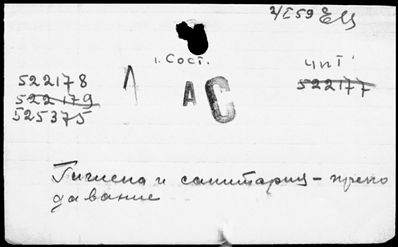 2/I 59 ЕЦ
1. Сост.
чит
522178
522179
525375
Л
АС
522177
Гигиена и санитария - препо
давание